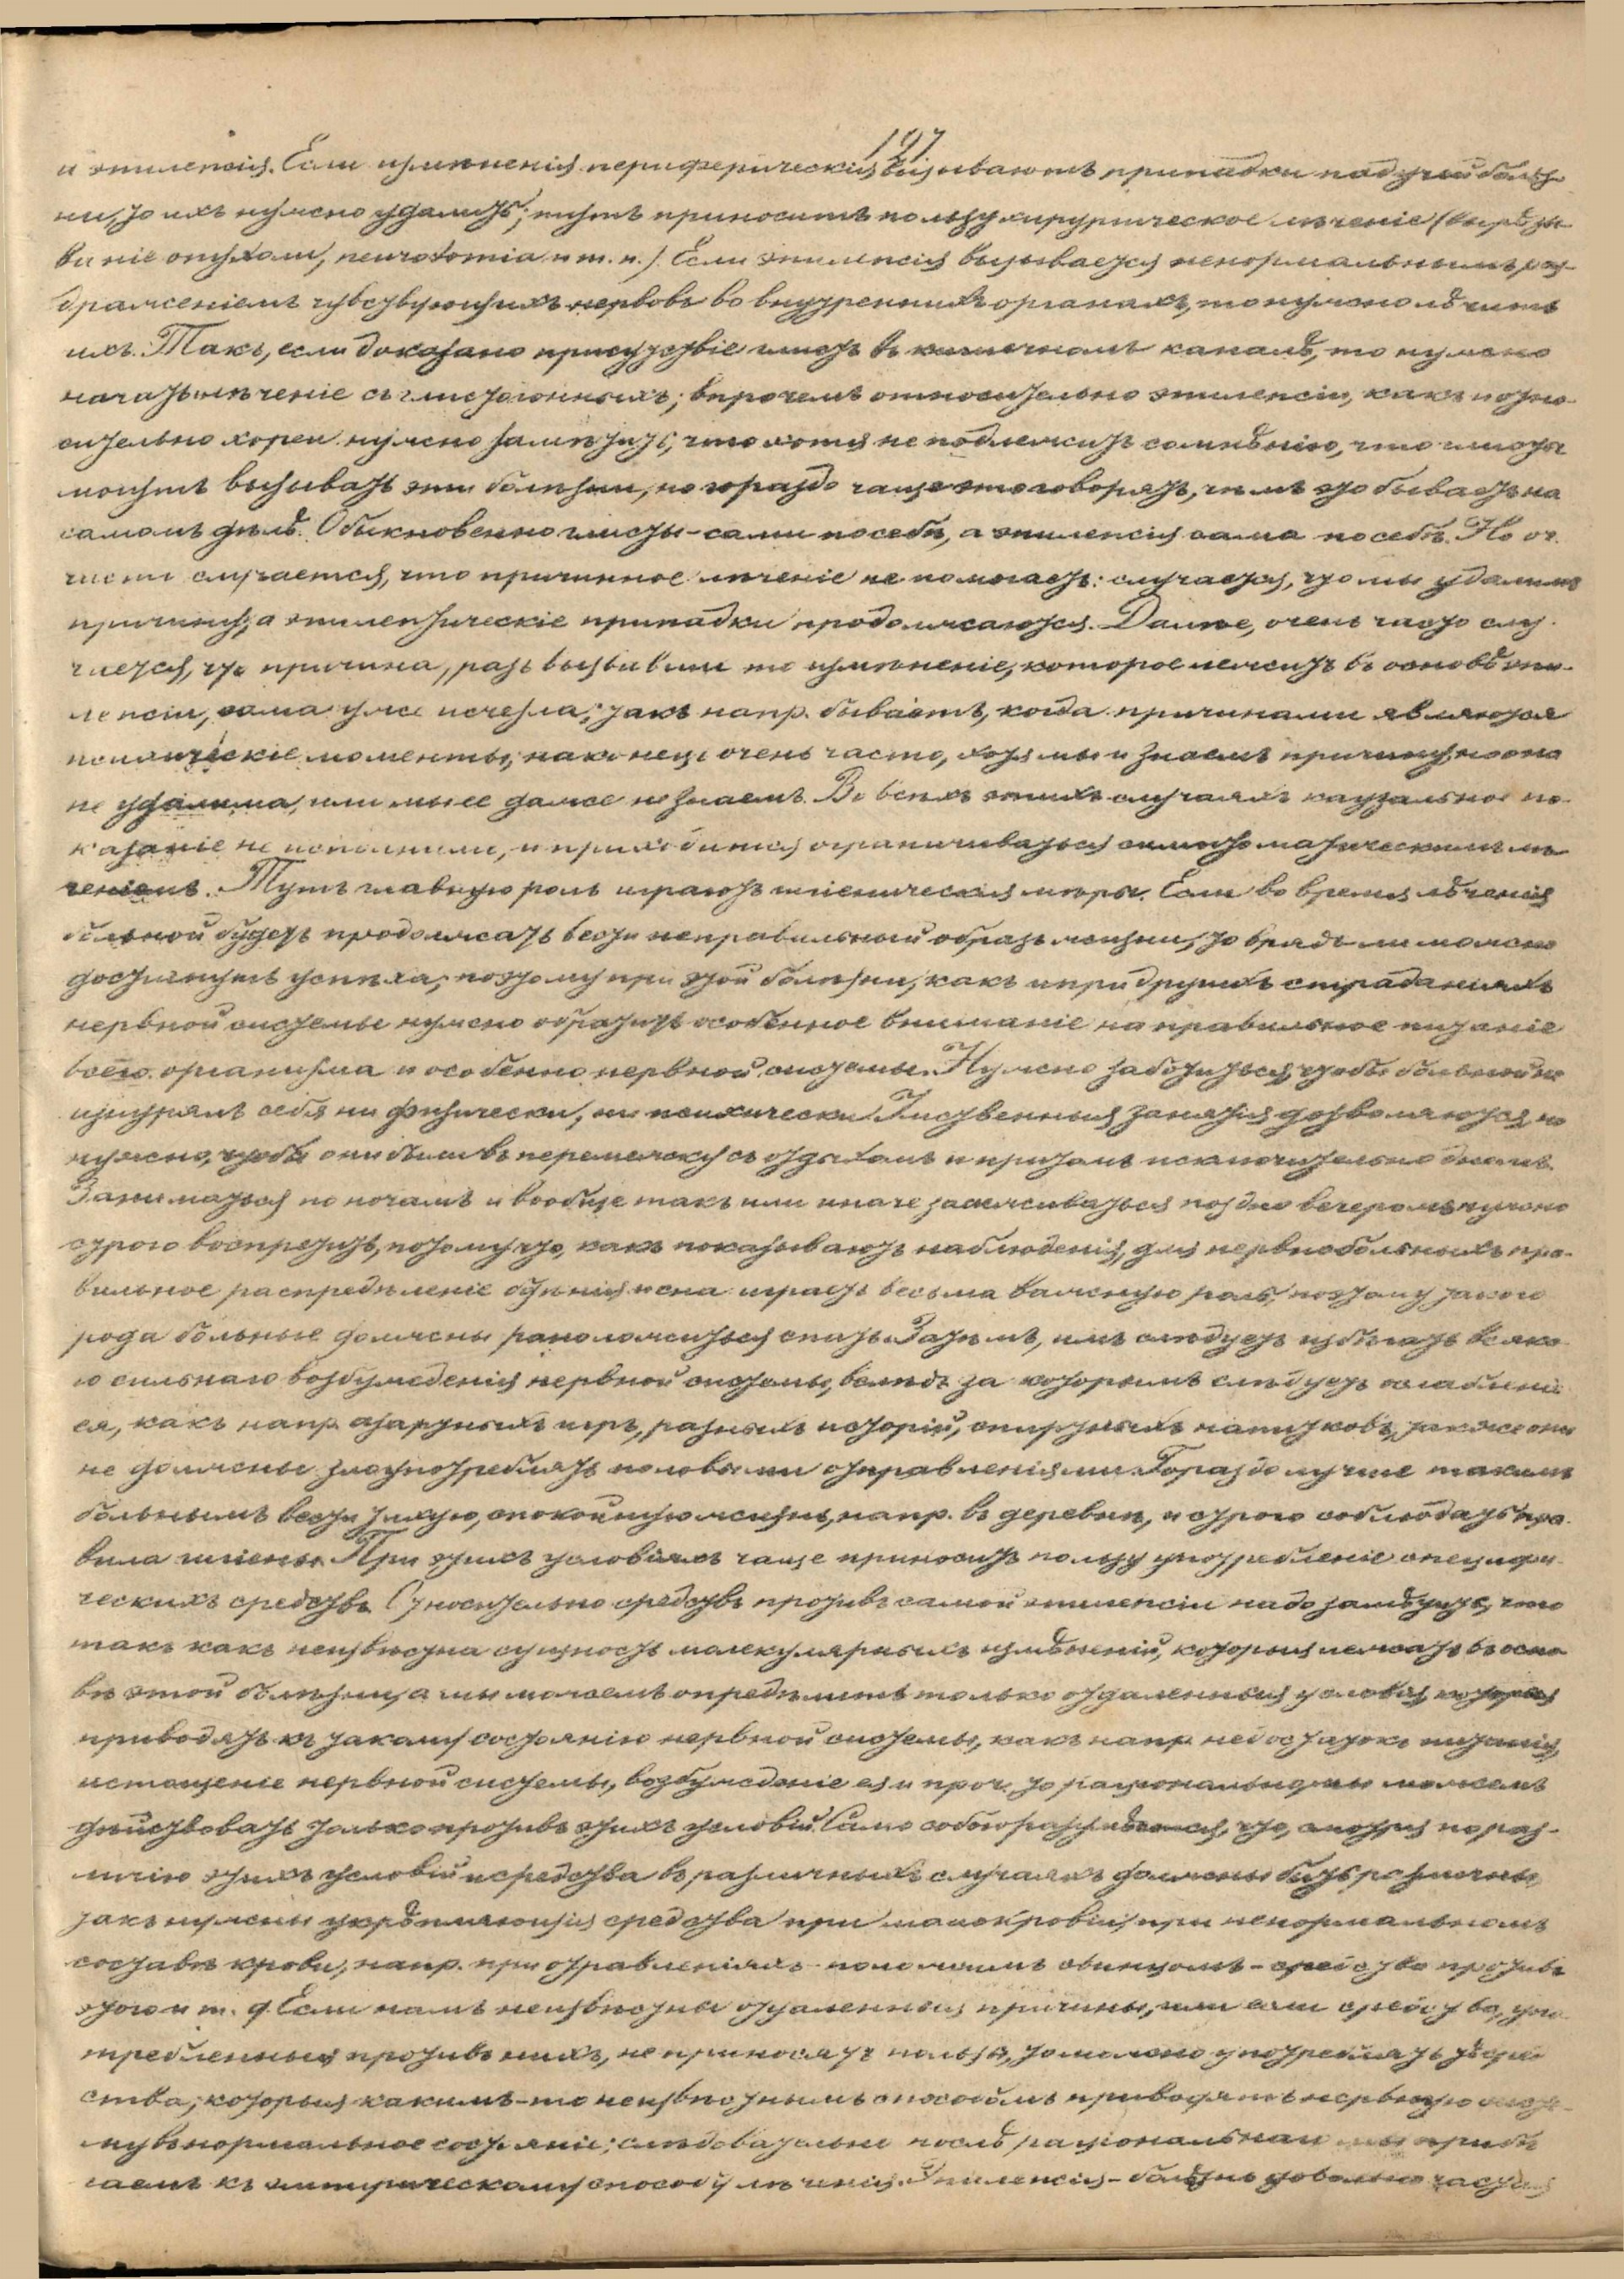 197
и эпилепсія. Если измѣненія периферическія вызываютъ припадки падучей болѣз-
ни, то ихъ нужно удалить; тутъ приноситъ пользу хирургическое лѣченіе (вырѣзы-
ваніе опухоли, neurotomia и т. п.). Если эпилепсія вызывается ненормальнымъ раз-
драженіемъ чувствующихъ нервовъ во внутреннихъ органахъ, то нужно лѣчить
ихъ. Такъ, если доказано присутствіе глистъ въ кишечномъ каналѣ, то нужно
начать лѣченіе съ глистогонныхъ; впрочемъ относительно эпилепсіи, какъ и отно-
сительно хореи нужно замѣтить, что хотя не подлежитъ сомнѣнію, что глисты
могутъ вызывать эти болѣзни, но гораздо чаще это говорятъ, чѣмъ это бываетъ на
самомъ дѣлѣ. Обыкновенно глисты - сами по себѣ, а эпилепсія сама по себѣ. Но от-
части случается, что причинное лѣченіе не помогаетъ: случается, что мы удалимъ
причину, а эпилептическіе припадки продолжаются. Далѣе, очень часто слу-
чается, что причина, разъ вызвавши то измѣненіе, которое лежитъ въ основѣ эпи-
лепсіи, сама уже исчезла; такъ напр. бываетъ, когда причинами являются
психическіе моменты; наконецъ очень часто, хотя мы и знаемъ причину, но она
не удалима, или мы ее даже не знаемъ. Во всѣхъ этихъ случаяхъ каузальное по-
казаніе не исполнимо, и приходится ограничиваться симптоматическимъ лѣ-
ченіемъ. Тутъ главную роль играютъ гигіеническія мѣры. Если во время лѣченія
больной будетъ продолжать вести неправильный образъ жизни, то врядъ ли можно
достигнуть успѣха; поэтому при этой болѣзни, какъ и при другихъ страданіяхъ
нервной системы нужно обратить особенное вниманіе на правильное питаніе
всего организма и особенно нервной системы. Нужно заботиться, чтобы больной не
изнурялъ себя ни физически, ни психически. Умственныя занятія дозволяются, но
нужно, чтобы они были въ перемежку съ отдыхомъ и притомъ исключительно днемъ.
Заниматься по ночамъ и вообще такъ или иначе засиживаться поздно вечеромъ нужно
строго воспретить, потому что, какъ показываютъ наблюденія, для нервнобольныхъ пра-
вильное распредѣленіе бдѣнія и сна играетъ весьма важную роль, поэтому такого
рода больные должны рано ложиться спать. Затѣмъ, имъ слѣдуетъ избѣгать всяка-
го сильнаго возбужденія нервной системы, вслѣдъ за которымъ слѣдуетъ ослабленіе
ея, какъ напр. азартныхъ игръ, разныхъ исторій, спиртныхъ напитковъ, также они
не должны злоупотреблять половыми отправленіями. Гораздо лучше такимъ
больнымъ вести тихую, спокойную жизнь, напр. въ деревнѣ, и строго соблюдать пра-
вила гигіены. При этихъ условіяхъ чаще приноситъ пользу употребленіе специфи-
ческихъ средствъ. Относительно средствъ противъ самой эпилепсіи надо замѣтить, что
такъ какъ неизвѣстна сущность молекулярныхъ измѣненій, которыя лежатъ въ осно-
вѣ этой болѣзни, а мы можемъ опредѣлить только отдаленныя условія, которыя
приводятъ къ такому состоянію нервной системы, какъ напр. недостатокъ питанія,
истощеніе нервной системы, возбужденіе ея и проч., то раціонально мы можемъ
дѣйствовать только противъ этихъ условій. Само собою разумѣется, что, смотря по раз-
личію этихъ условій и средства въ различныхъ случаяхъ должны быть различны,
такъ нужны укрѣпляющія средства при малокровіи, при ненормальномъ
составѣ крови, напр. при отравленіяхъ - положимъ свинцомъ - средства противъ
этого и т. д. Если намъ неизвѣстны отдаленныя причины, или если средства, упо-
требленныя противъ нихъ, не приносятъ пользы, то можно употреблять сред-
ства, которыя какимъ-то неизвѣстнымъ способомъ приводятъ нервную систе-
му въ нормальное состояніе; слѣдовательно послѣ раціональнаго мы прибѣ-
гаемъ къ эмпирическому способу лѣченія. Эпилепсія - болѣзнь довольно частая